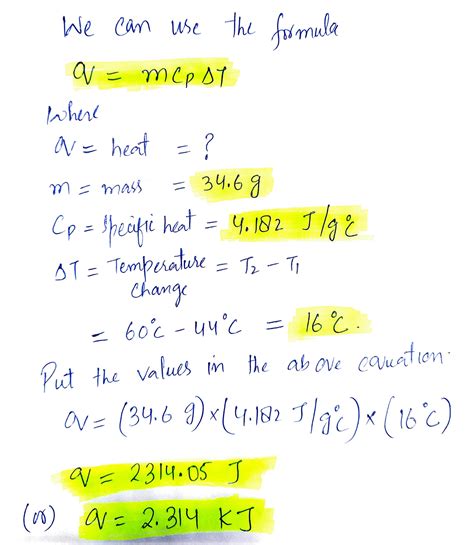 We can use the formula
q = mCpΔT
Where
q = heat = ?
m = mass = 34.6 g
Cp = Specific heat = 4.182 J/g°c
ΔT = Temperature change = T₂ – T₁
= 60°c – 44°c = 16°c.
Put the values in the above equation.
q = (34.6 g)×(4.182 J/g°c)×(16°c)
q = 2314.05 J
(or) q = 2.314 KJ